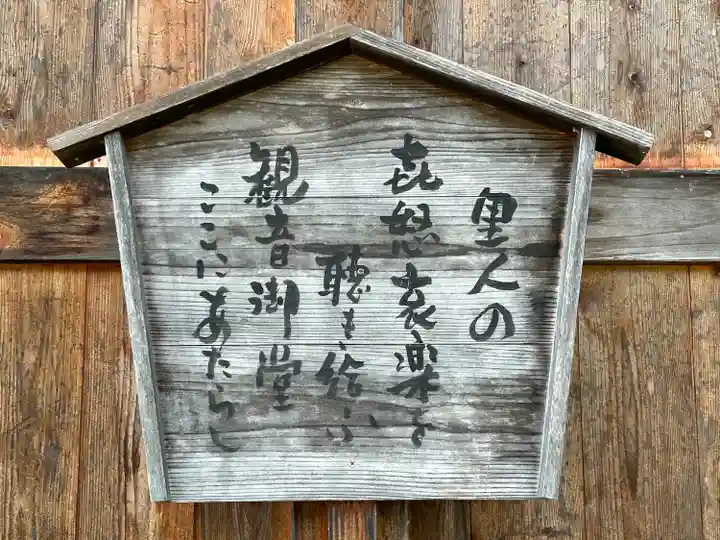 里人の
喜怒哀楽を
聴き給ふ
観音御堂
ここにあたらし